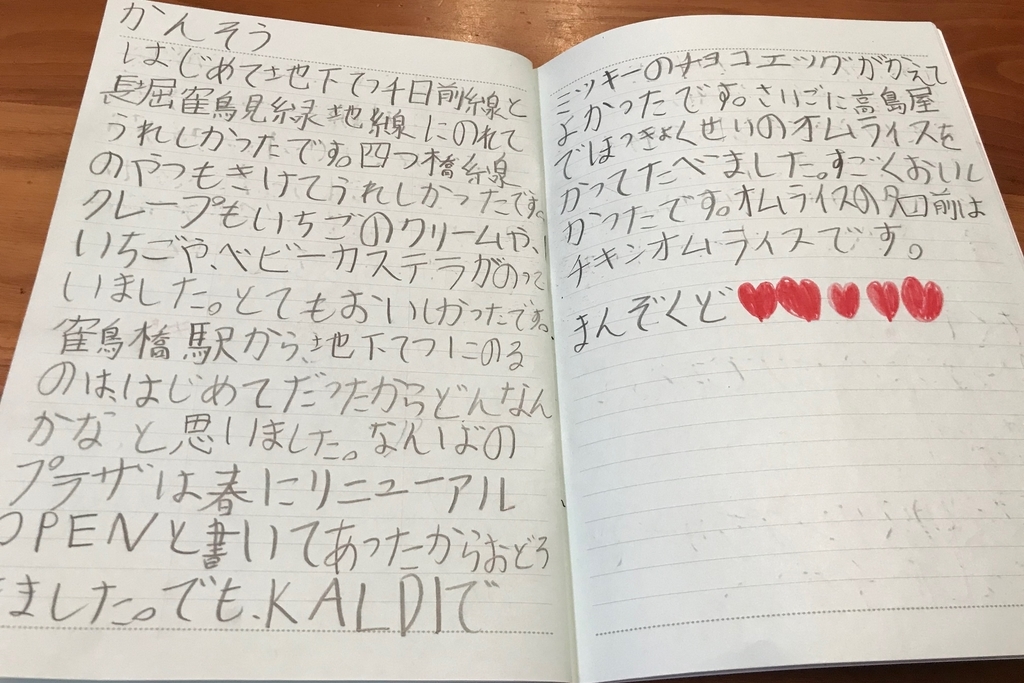 かんそう
はじめて地下てつ千日前線と
長堀鶴見緑地線にのれて
うれしかったです。四つ橋線
のやつもきけてうれしかったです。
クレープもいちごのクリームや、
いちごや、ベビーカステラがのって
いました。とてもおいしかったです。
鶴橋駅から、地下てつにのる
のは、はじめてだったからどんなん
かなと思いました。なんばの
プラザは春にリニューアル
OPENと書いてあったからおどろ
きました。でも、KALDIで
ミッキーのチョコエッグがかえて
よかったです。さいごに高島屋
でほっきょくせいのオムライスを
かってたべました。すごくおいし
かったです。オムライスの名前は
チキンオムライスです。
まんぞくど